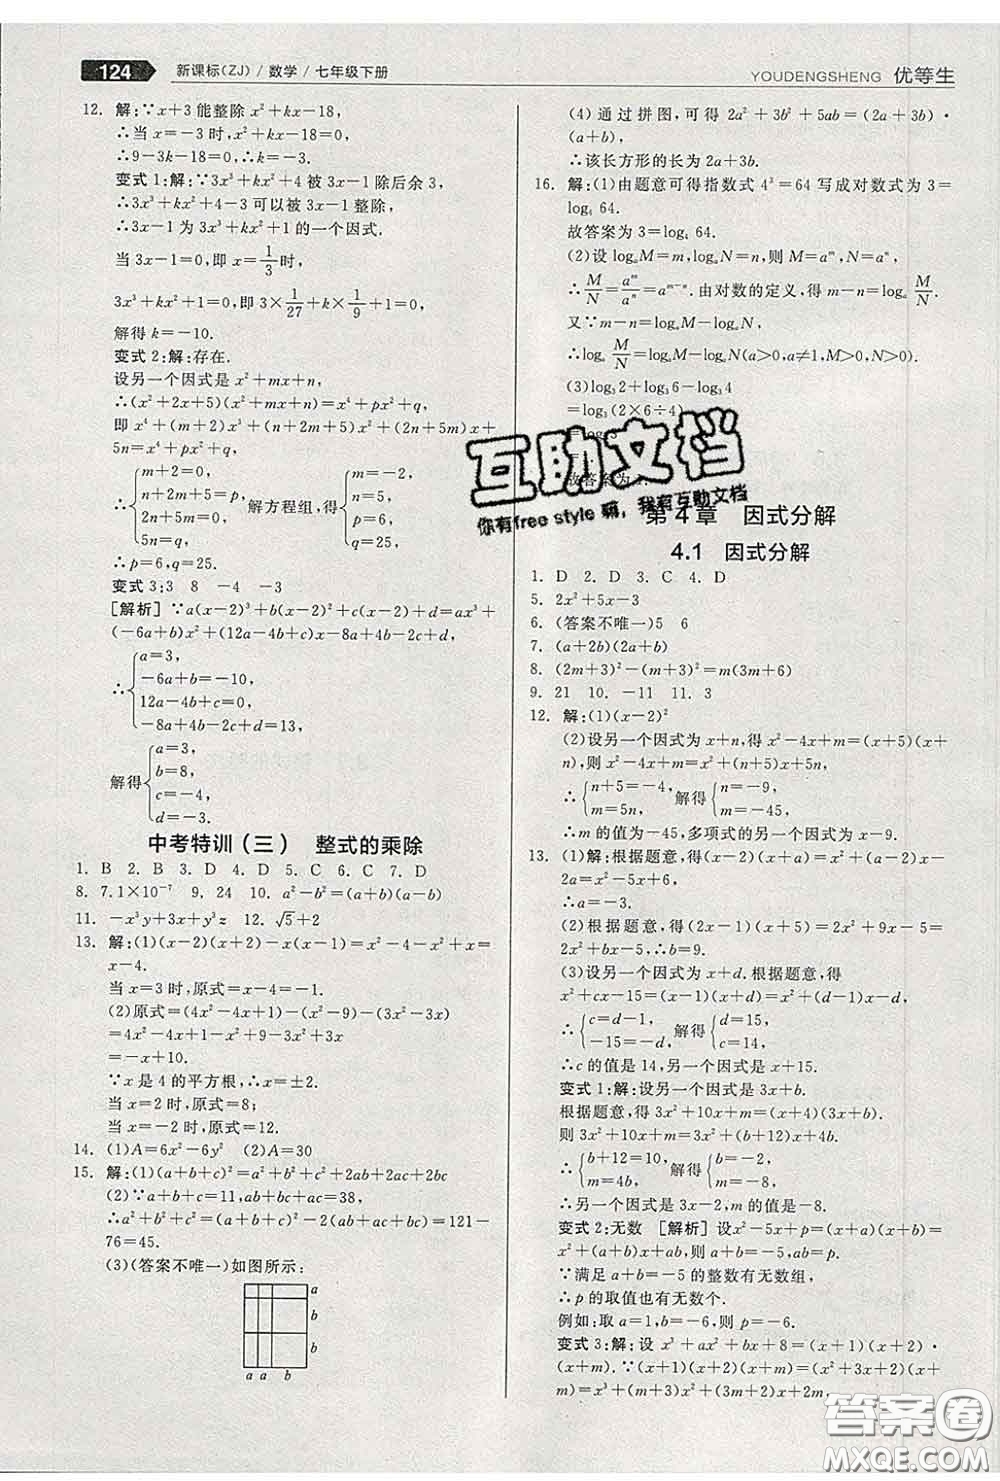 124 新课标(ZJ)/数学/七年级下册
YOUDENGSHENG 优等生
12. 解:∵x+3能整除x²+kx-18,
∴当x=-3时,x²+kx-18=0,
∴9-3k-18=0,∴k=-3.
变式1:解:∵3x³+kx²+4被3x-1除后余3,
∴3x³+kx²+4-3可以被3x-1整除,
∴3x-1为3x³+kx²+1的一个因式.
当3x-1=0,即x=1/3时,
3x³+kx²+1=0,即3×1/27+k×1/9+1=0,
解得k=-10.
变式2:解:存在.
设另一个因式是x²+mx+n,
∴(x²+2x+5)(x²+mx+n)=x⁴+px²+q,
即x⁴+(m+2)x³+(n+2m+5)x²+(2n+5m)x+
5n=x⁴+px²+q,
∴{m+2=0, n+2m+5=p, 2n+5m=0, 5n=q, 解方程组,得{m=-2, n=5, p=6, q=25.
∴p=6,q=25.
变式3:3 8 -4 -3
[解析] ∵a(x-2)³+b(x-2)²+c(x-2)+d=ax³+
(-6a+b)x²+(12a-4b+c)x-8a+4b-2c+d,
∴{a=3, -6a+b=-10, 12a-4b+c=0, -8a+4b-2c+d=13,
解得{a=3, b=8, c=-4, d=-3.
中考特训(三) 整式的乘除
1. B 2. B 3. D 4. D 5. C 6. C 7. D
8. 7.1×10⁻⁷ 9. 24 10. a²-b²=(a+b)(a-b)
11. -x³y+3x+y³z 12. √5+2
13. 解:(1)(x-2)(x+2)-x(x-1)=x²-4-x²+x=
x-4.
当x=3时,原式=-1.
(2)原式=(4x²-4x+1)-(4x²-3x-9)
=4x²-4x+1-4x²+3x+9
=-x+10.
∵x是4的平方根,∴x=±2.
当x=2时,原式=8;
当x=-2时,原式=12.
14. (1)A=6x²-6y² (2)A=30
15. 解:(1)(a+b+c)²=a²+b²+c²+2ab+2ac+2bc
(2)∵a+b+c=11,ab+bc+ac=38,
∴a²+b²+c²=(a+b+c)²-2(ab+ac+bc)=121-
76=45.
(3)(答案不唯一)如图所示:
a
b
b
a a b
(4)通过拼图,可得2a²+3b²+5ab=(2a+3b)·
(a+b),
∴该长方形的长为2a+3b.
16. 解:(1)由题意可得指数式4³=64写成对数式为3=
log₄64.
故答案为3=log₄64.
(2)设logₐM=m,logₐN=n,则M=aᵐ,N=aⁿ,
∴M/N=aᵐ/aⁿ=aᵐ⁻ⁿ.由对数的定义,得m-n=logₐM/N.
又∵m-n=logₐM-logₐN,
∴logₐM/N=logₐM-logₐN(a>0,a≠1,M>0,N>0).
(3)log₃2+log₃6-log₃4
=log₃(2×6÷4)
故答案为
互助文档
你有free style 嘛, 我有互助文档
第4章 因式分解
4.1 因式分解
1. D 2. D 3. C 4. D
5. 2x²+5x-3
6. (答案不唯一)5 6
7. (a+2b)(2a+b)
8. (2m+3)²-(m+3)²=m(3m+6)
9. 21 10. -11 11. 3
12. 解:(1)(x-2)²
(2)设另一个因式为x+n,得x²-4x+m=(x+5)(x+
n),则x²-4x+m=x²+(n+5)x+5n,
∴{n+5=-4, m=5n, 解得{n=-9, m=-45,
∴m的值为-45,多项式的另一个因式为x-9.
13. (1)解:根据题意,得(x-2)(x+a)=x²+(a-2)x-
2a=x²-5x+6,
∴a=-3.
(2)根据题意,得(2x-1)(x+5)=2x²+9x-5=
2x²+bx-5,∴b=9.
(3)设另一个因式为x+d.根据题意,得
x²+cx-15=(x-1)(x+d)=x²+(d-1)x-d,
∴{c=d-1, -15=-d, 解得{d=15, c=14.
∴c的值是14,另一个因式是x+15.
变式1:解:设另一个因式是3x+b.
根据题意,得3x²+10x+m=(x+4)(3x+b).
则3x²+10x+m=3x²+(b+12)x+4b.
∴{b+12=10, m=4b, 解得{b=-2, m=-8,
∴另一个因式是3x-2,m的值是-8.
变式2:无数 [解析] 设x²-5x+p=(x+a)(x+b)=
x²+(a+b)x+ab,∴a+b=-5,p=ab.
∵满足a+b=-5的整数有无数组,
∴p的取值也有无数个.
例如:取a=1,b=-6,p=-6.
变式3:解:设x³+ax²+bx+8=(x+1)(x+2)·
(x+m).∵(x+1)(x+2)(x+m)=(x²+3x+2)·
(x+m)=x³+(3+m)x²+(3m+2)x+2m,
答案圈
MXQE.COM